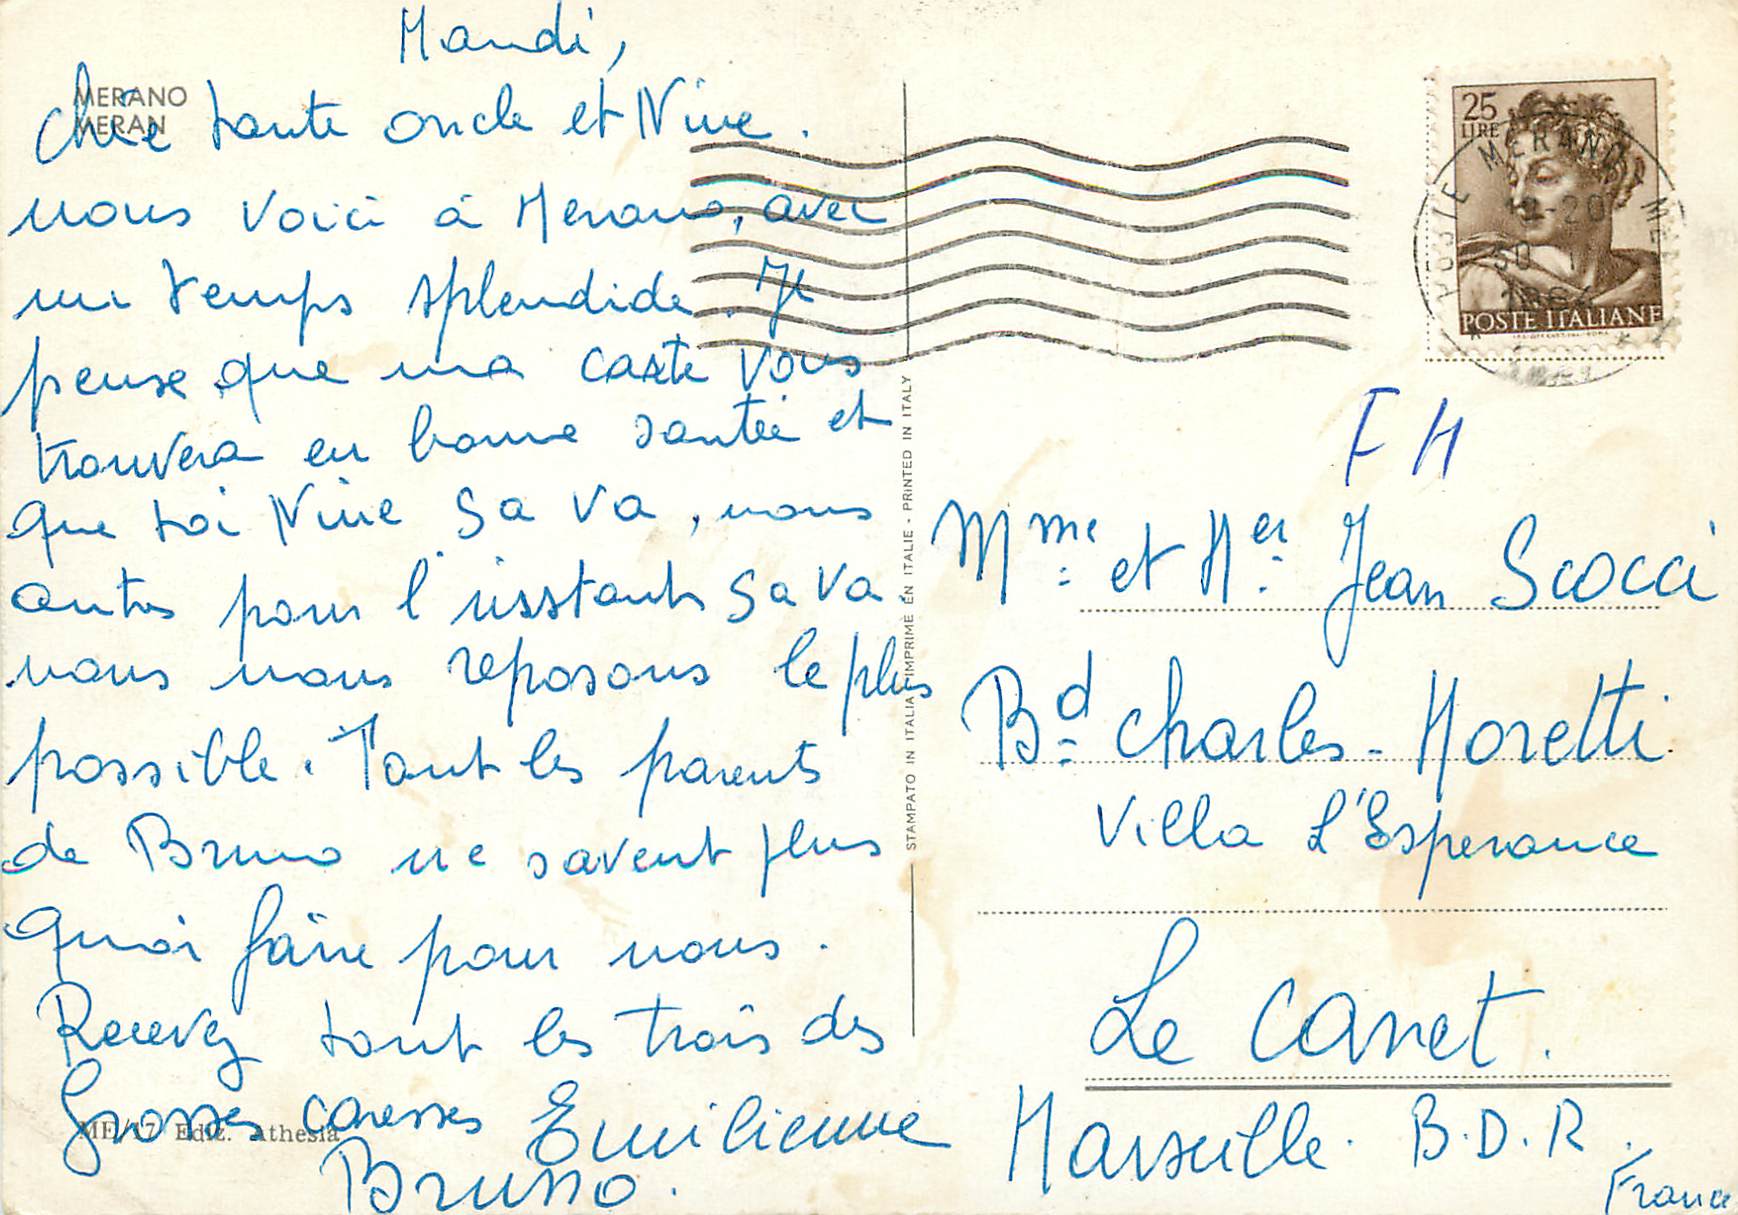 Mardi,
MERANO
MERAN
Chère tante oncle et Nine.
nous voici à Merano, avec
un temps splendide. Je
pense que ma carte vous
trouvera en bonne santée et
que toi Nine sa va, nous
autres pour l'instant sa va.
nous nous reposons le plus
possible. Tout les parents
de Bruno ne savent plus
quoi faire pour nous.
Recevez tout les trois des
Grosses caresses Emilienne
Bruno.
ME/17 Ediz. Athesia
STAMPATO IN ITALIA - IMPRIMÉ EN ITALIE - PRINTED IN ITALY
25
LIRE
POSTE ITALIANE
POSTE MERANO
-20
30
F H
Mme et Mer Jean Scocci
Bd Charles-Moretti
Villa L'Esperance
Le Canet.
Marseille. B.D.R.
France